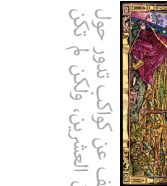 ف عن كواكب تدور حول
ن العشرين، ولكن لم تكن